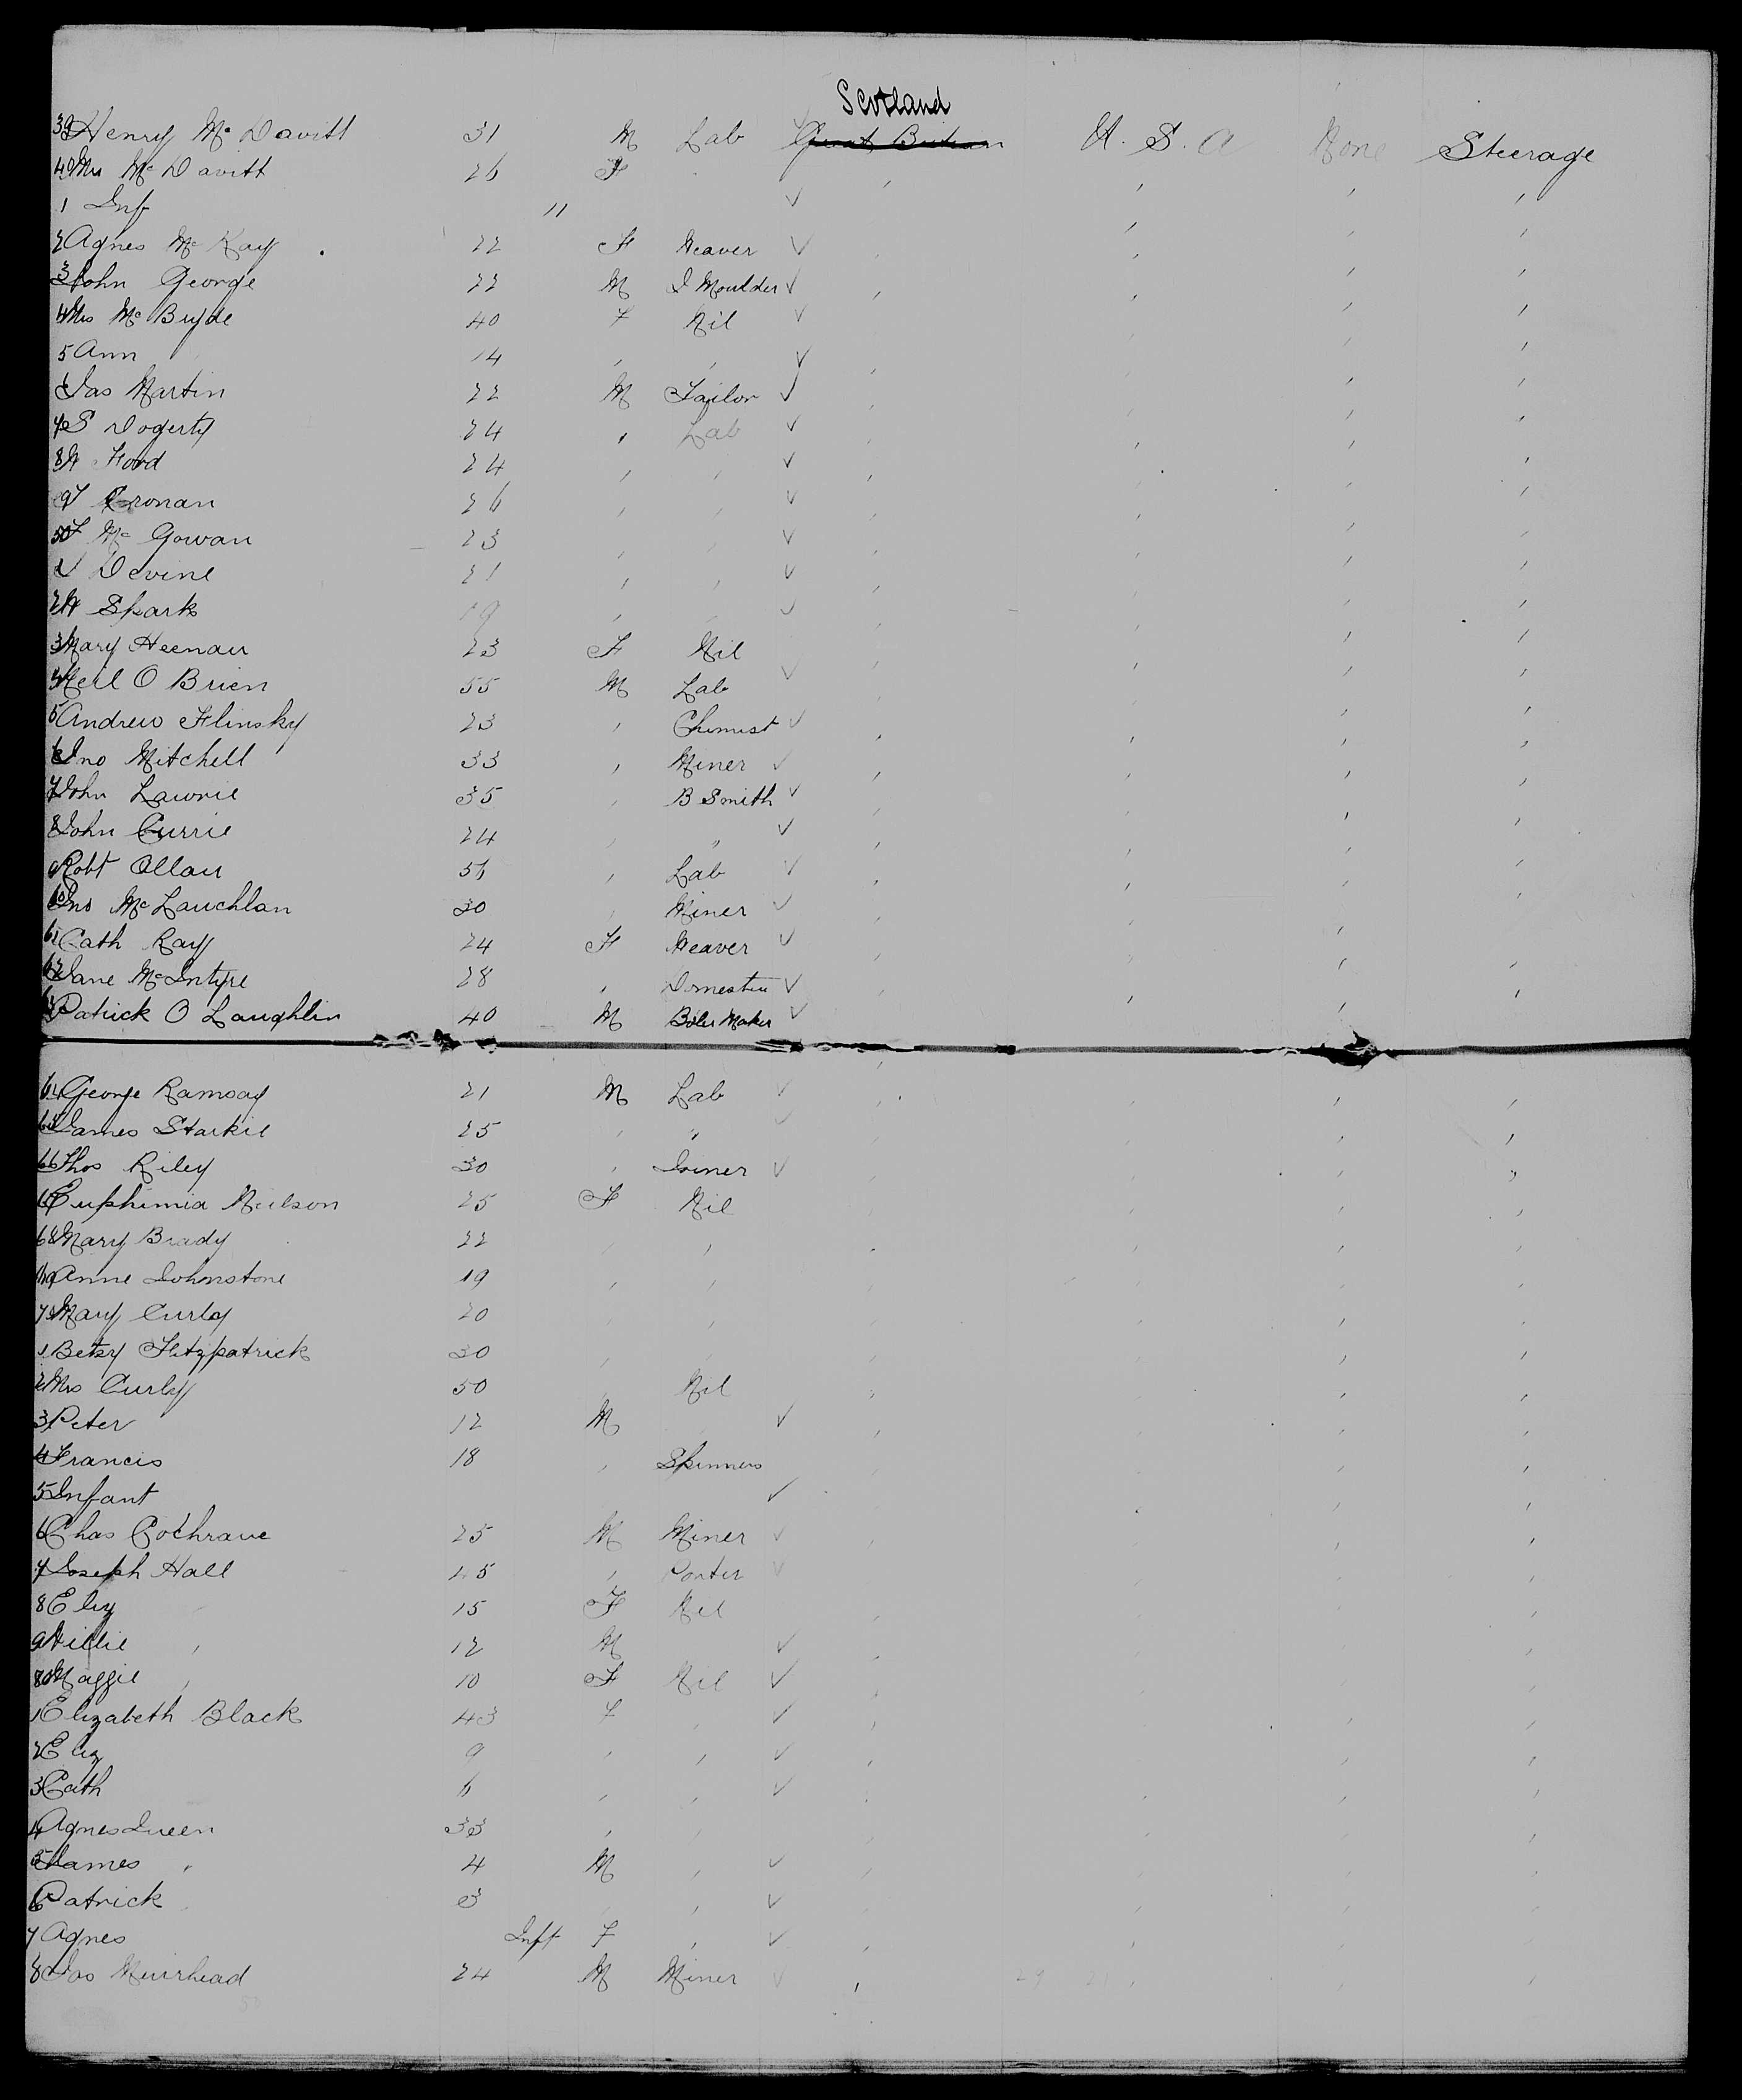 Scotland
39 Henry Mc Davitt 31 M Lab Great Britain U. S. A None Steerage
40 Mrs Mc Davitt 26 F
1 Inf 11
2 Agnes Mc Kay 22 F Weaver
3 John George 22 M I Moulder
4 Mrs Mc Bryde 40 F Nil
5 Ann 14 " "
6 Jas Martin 22 M Tailor
7 S Dogerty 24 " Lab
8 W Ford 24 " "
9 T Cronan 26 " "
50 F Mc Gowan 23 " "
1 J Devine 21 " "
2 W Spark 19 " "
3 Mary Heenan 23 F Nil
4 Neil O Brien 55 M Lab
5 Andrew Flinsky 23 " Chemist
6 Jno Mitchell 33 " Miner
7 John Lawrie 35 " B Smith
8 John Currie 24 " "
9 Robt Allan 56 " Lab
60 Jno Mc Lauchlan 30 " Miner
61 Cath Kay 24 F Weaver
62 Jane McIntyre 28 " Domestic
63 Patrick O Laughlin 40 M Boiler Maker
64 George Ramsay 21 M Lab
65 James Starkie 25 " "
66 Thos Riley 30 " Joiner
67 Euphimia Neilson 25 F Nil
68 Mary Brady 22 " "
69 Anne Johnstone 19 " "
70 Mary Curley 20 " "
1 Betsy Fitzpatrick 30 " "
2 Mrs Curley 50 " Nil
3 Peter 12 M
4 Francis 18 " Spinners
5 Infant
6 Chas Cochrane 25 M Miner
7 Joseph Hall 45 " Porter
8 Eliz 15 F Nil
9 Willie " 12 M
80 Maggie " 10 F Nil
1 Elizabeth Black 43 F "
2 Eliz 9 " "
3 Cath 6 " "
4 Agnes Queen 33 "
5 James " 4 M "
6 Patrick 3 "
7 Agnes Inft F "
8 Jas Muirhead 24 M Miner